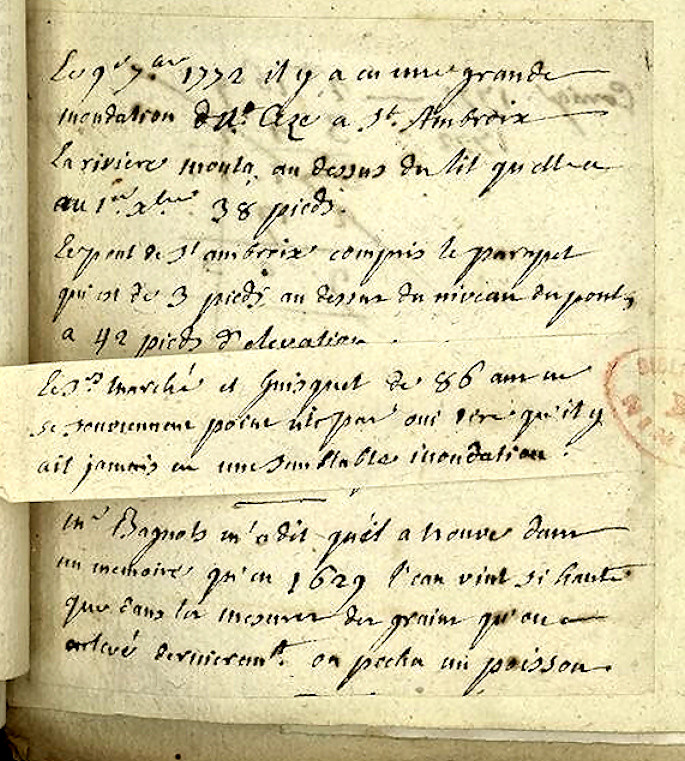 Le 9e 7bre 1772 il y a eu une grande
inondation de Ceze a St. Ambroix
La riviere monta au dessus du lit qu'elle a
au 1er xbre 38 pieds.
Le pont de St ambroix compris le parapet
qui est de 3 pieds au dessus du niveau du pont,
a 42 pieds d'elevation.
Le Sr marché et de 86 ans ne
se souviennent point n'y avoir oui dire qu'il y
ait jamais eu une semblable inondation.
mr Bagnols m'a dit qu'il a trouvé dans
un memoire qu'en 1629 l'eau vint si haute
que dans les mesures des grains qu'on a
enlevé dernieremt. on pecha un poisson.